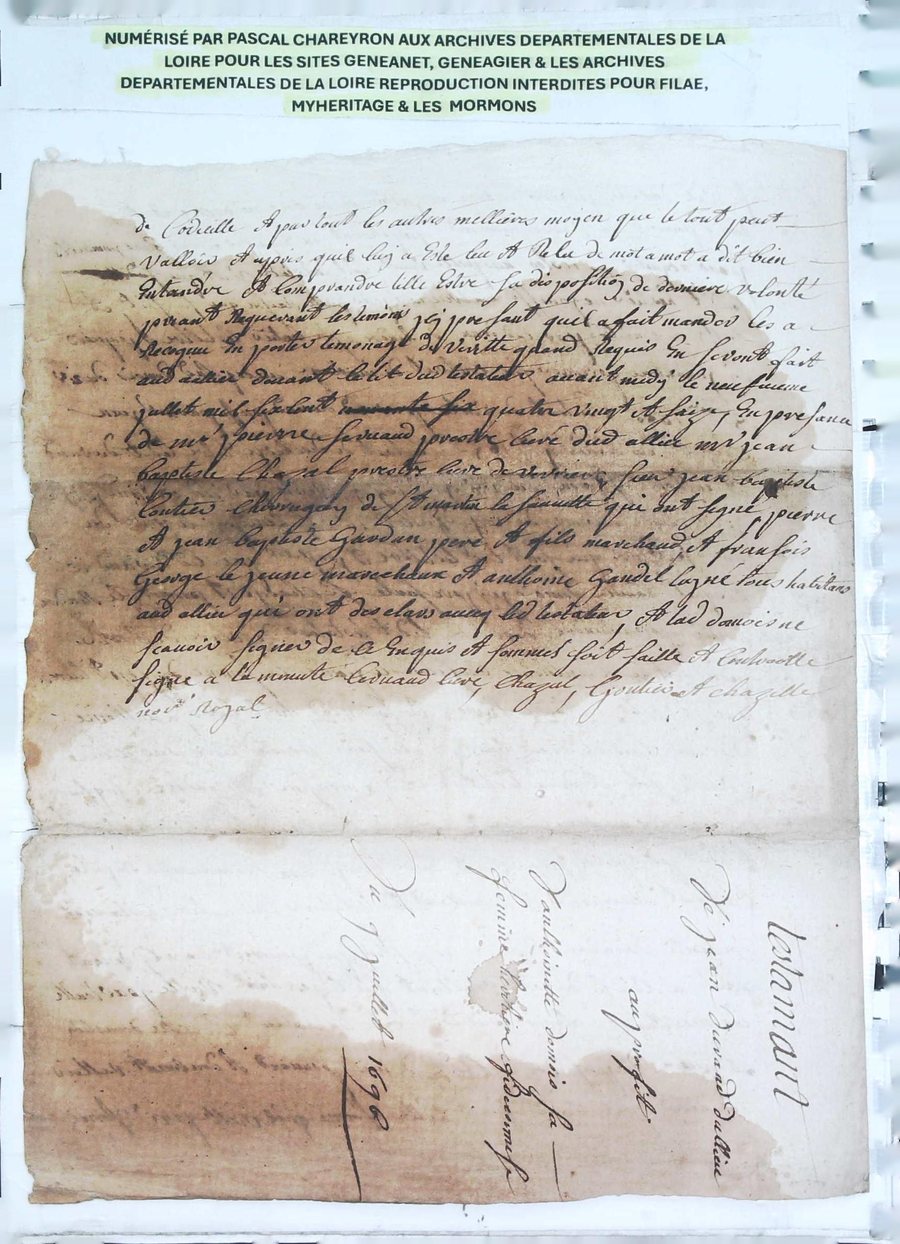 NUMÉRISÉ PAR PASCAL CHAREYRON AUX ARCHIVES DEPARTEMENTALES DE LA
LOIRE POUR LES SITES GENEANET, GENEAGIER & LES ARCHIVES
DEPARTEMENTALES DE LA LOIRE REPRODUCTION INTERDITES POUR FILAE,
MYHERITAGE & LES MORMONS
de Codicille & par tout les autres mellieures moyen que le tout peut
Valloir & apres quil luy a Este leu & Relu de mot a mot a dit bien
Entandre & Comprandre Estre sa disposition de derniere volonté
priant Requerant les temoins jcy presant quil a fait mander les a
Recognu En porter temonage de veritte quand Requis En seront fait
aud allieu devant le lit dud testateur avant midy le neufvieme
juillet mil six cent novante six quatre vingt & saize, En presance
de mre pierre prestre curé dud allieu mre jean
baptiste Chazal prestre curé de sieur jean baptiste
Goutier Chirurgien de St martin qui ont signé, pierre
& jean baptiste Gardan pere & fils marchand, & fransois
George le jeune marechaux & anthoine Gandel tous habitans
aud allieu qui ont desclaré avecq led testateur, & lad domois ne
scavoir signer de ce Enquis & sommés soit &
signé a la minutte curé, Chazal, Goutier & chazelle
nore Royal
testamant
De jean durand dallieu
au profit
D'anthoinette domois sa
femme
Du 9 juillet 1696